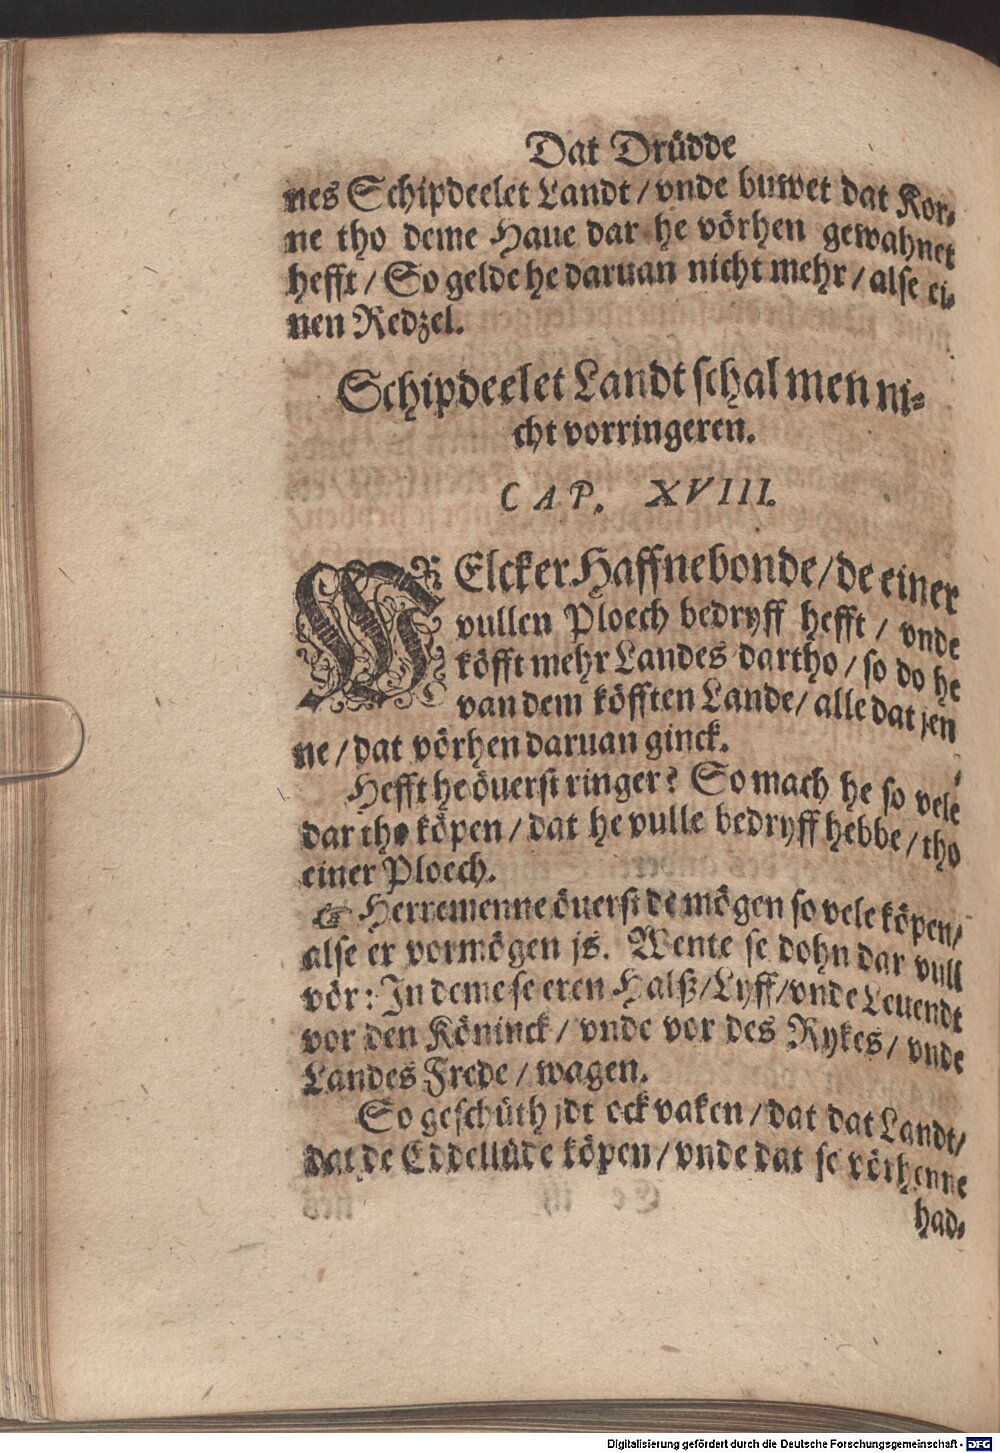 Dat Drüdde
nes Schipdeelet Landt / vnde buwet dat Kor-
ne tho deme Haue dar he vörhen gewahnet
hefft / So gelde he daruan nicht mehr / alse ei-
nen Redzel.
Schipdeelet Landt schal men ni-
cht vorringeren.
CAP. XVIII.
WElcker Haffnebonde / de einer
vullen Ploech bedryff hefft / vnde
köfft mehr Landes dartho / so do he
van dem köfften Lande / alle dat jen
ne / dat vörhen daruan ginck.
Hefft he öuerst ringer? So mach he so vele
dar tho köpen / dat he vulle bedryff hebbe / tho
einer Ploech.
☞ Herremenne öuerst de mögen so vele köpen /
alse er vormögen js. Wente se dohn dar vull
vör: In deme se eren Halß / Lyff / vnde Leuendt
vor den Köninck / vnde vor des Rykes / vnde
Landes Frede / wagen.
So geschüth jdt ock vaken / dat dat Landt /
dat de Eddellüde köpen / vnde dat se vörhenne
had-
Digitalisierung gefördert durch die Deutsche Forschungsgemeinschaft - DFG